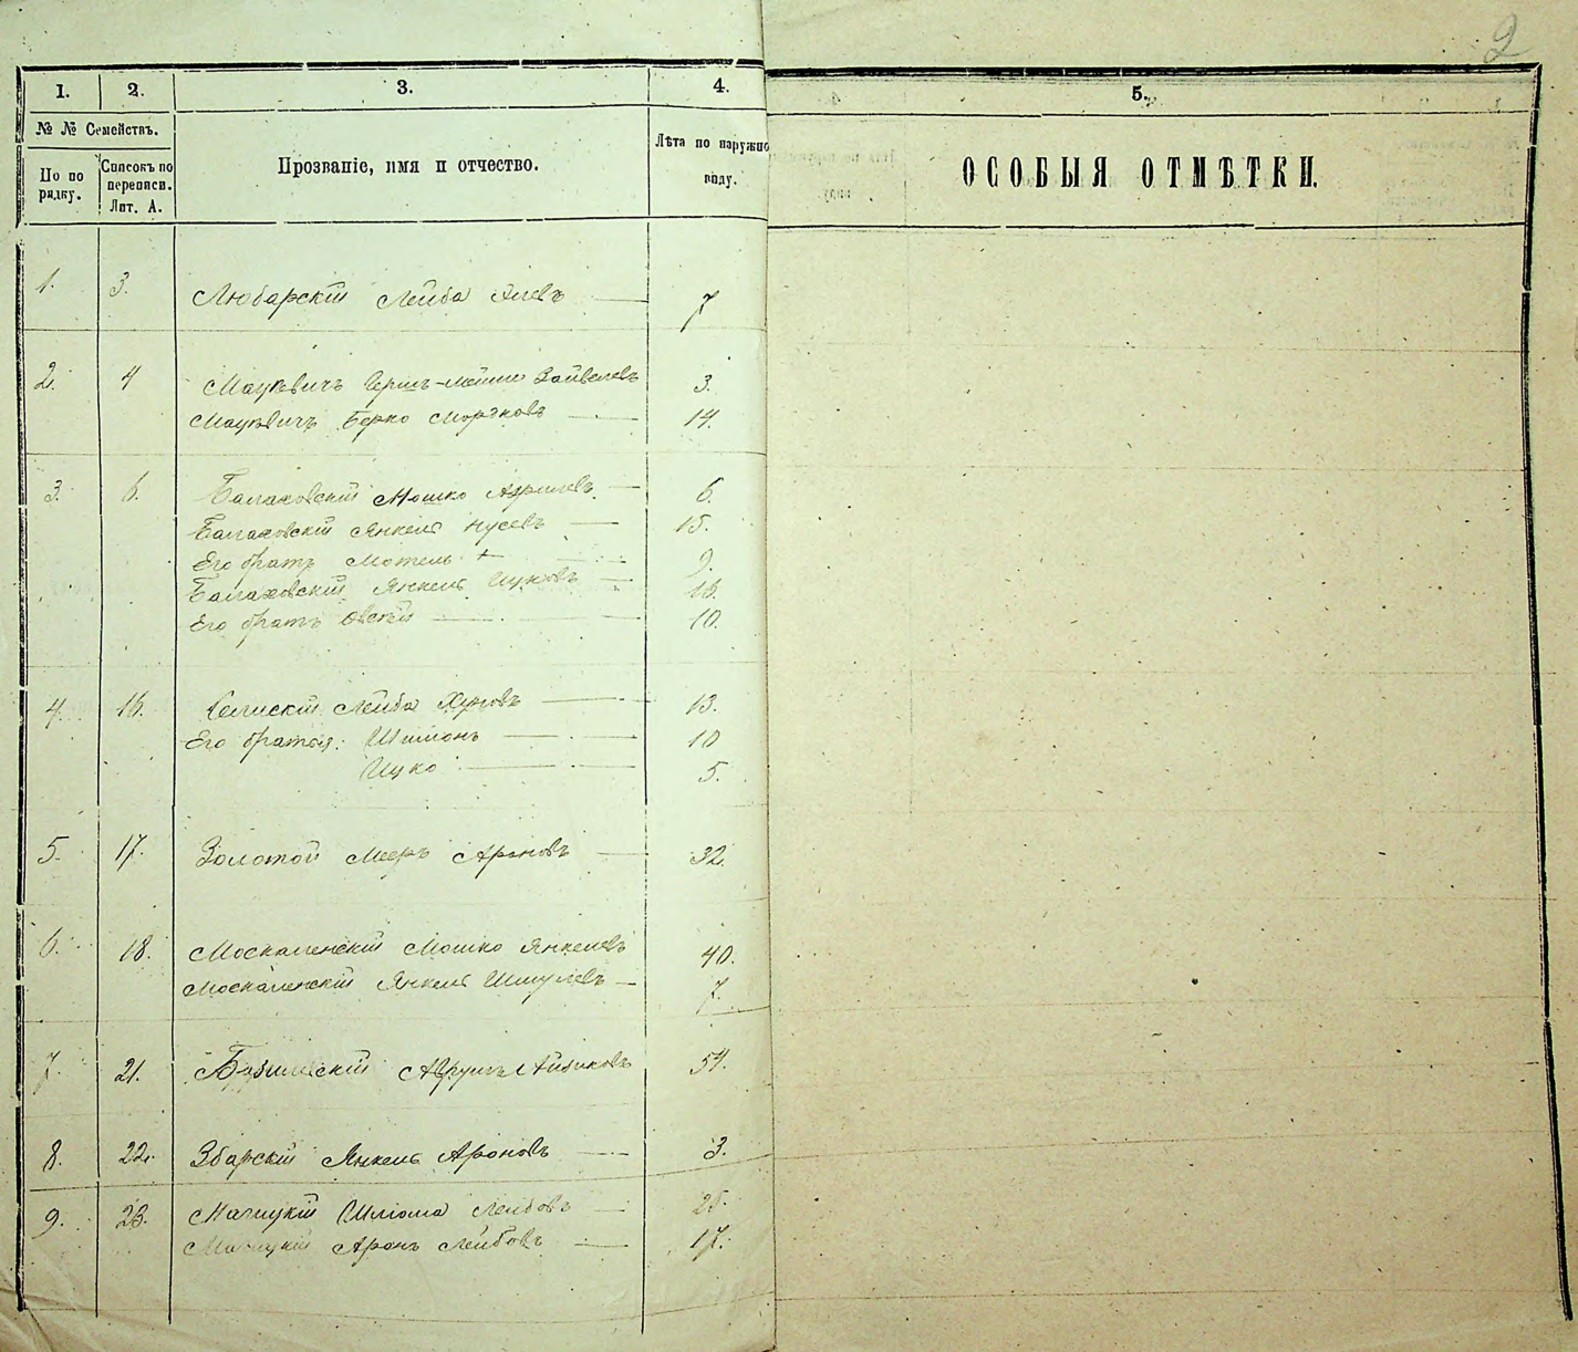 2
1. 2. 3. 4. 5.
№ № Семействъ.
По по рядку.
Списокъ по переписи. Лит. А.
Прозваніе, имя и отчество.
Лѣта по наружно виду.
ОСОБЫЯ ОТМѢТКИ.
1. 3. Любарскій Лейба 7
2. 4 Мацкевичъ Гершъ- 3.
Мацкевичъ Берко Мордковъ 14.
3. 6. Балаховскій Мошко 6.
Балаховскій Янкель Нусевъ 15.
Его братъ Мотель + 9.
Балаховскій Янкель Ицковъ 16.
Его братъ Овсей 10.
4. 16. Лейба 13.
Его братья: Шимонъ 10
Ицко 5.
5. 17. Золотой Мееръ Ароновъ 32.
6. 18. Москаленскій Мошко Янкелевъ 40.
Москаленскій Янкель Шмулевъ 7.
7. 21. Аврумъ Айзиковъ 54.
8. 22. Збарскій Янкель Ароновъ 3.
9. 23. Шлюма Лейбовъ 25.
Аронъ Лейбовъ 17.